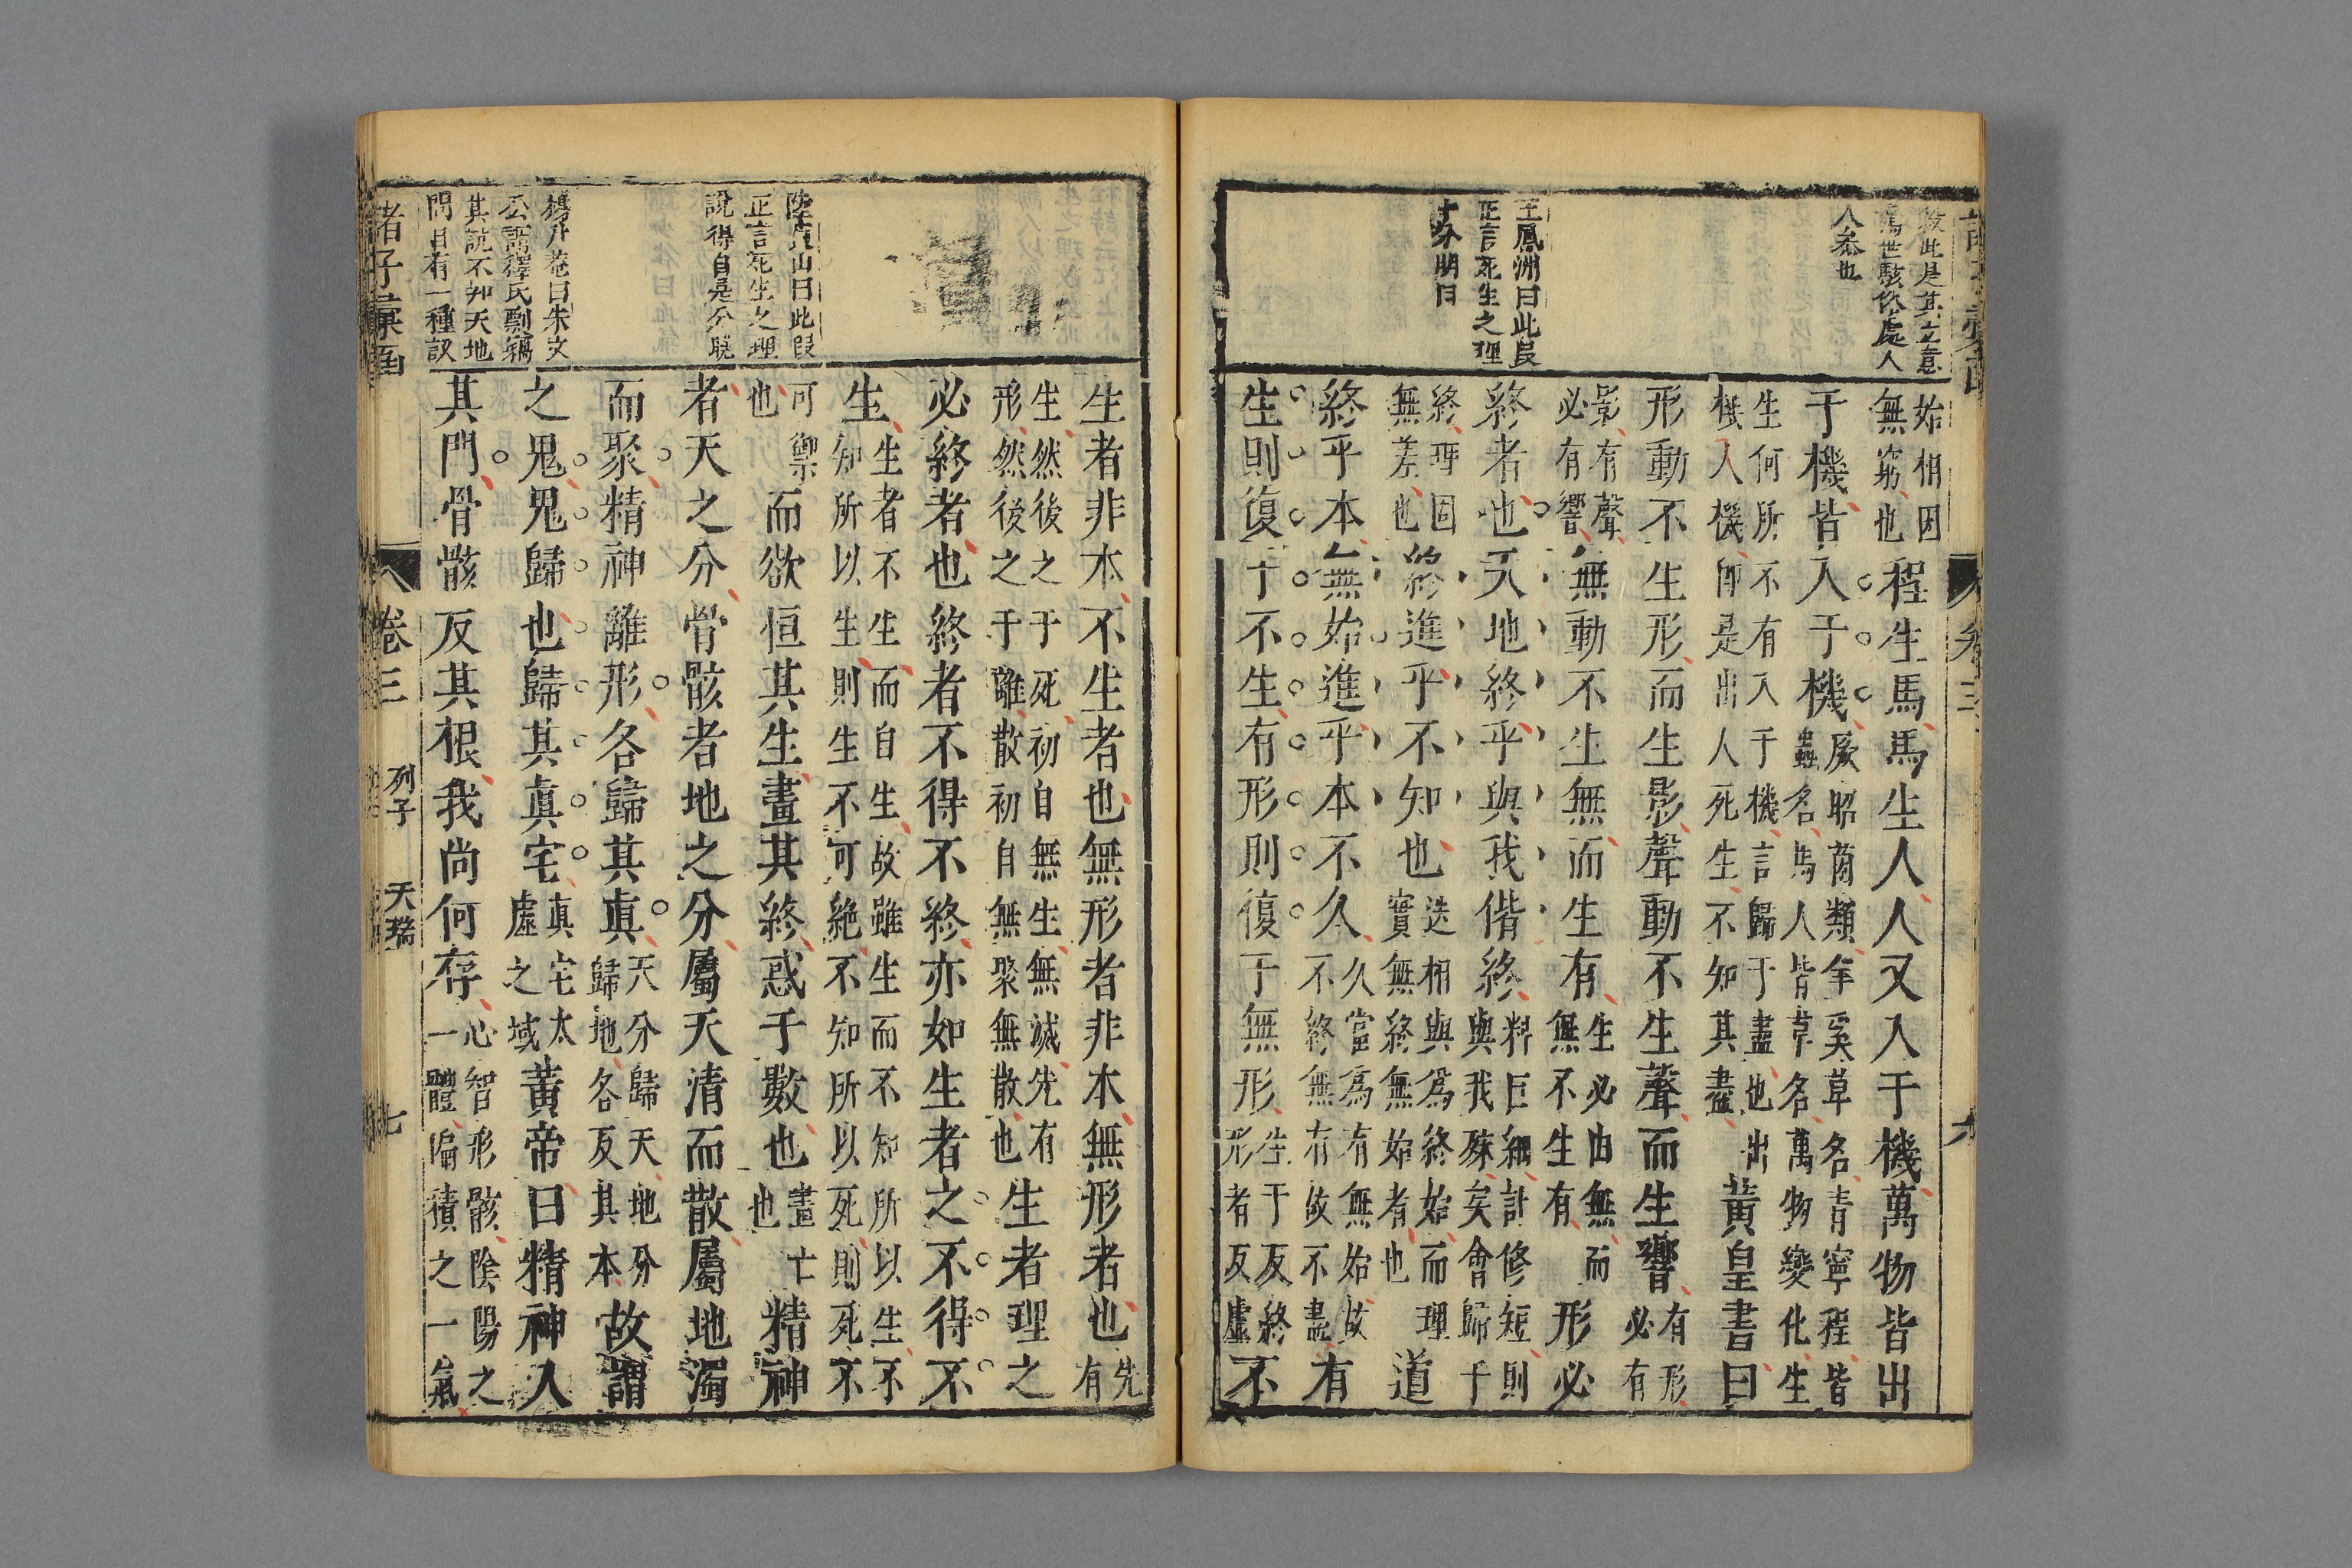 殺此是其立意
駕世駭俗處人
人忝也
王鳳洲曰此叚
正言死生之理
十分明白
始相因無窮也程生馬馬生人人又入于機萬物皆出
于機皆入于機厥昭茵類羊奚草名青寧程皆蟲名馬人皆草名萬物變化生
生何所不有入于機言歸于盡也出機入機卽是出人死生不知其盡黃皇書曰
形動不生形而生影聲動不生聲而生響有形必有
影有聲必有響無動不生無而生有生必由無而無不生有形必
終者也天地終乎與我偕終料巨細計修短則與我殊矣會歸于
終理固無差也終進乎不知也迭相與爲終始而理實無終無始者也道
終乎本無始進乎本不久久當爲有無始故不終無有故不盡有
生則復于不生有形則復于無形生于反終形者反虛不
生者非本不生者也無形者非本無形者也先有
生然後之于死初自無生無滅先有形然後之于離散初自無聚無散也生者理之
必終者也終者不得不終亦如生者之不得不
生生者不生而自生故雖生而不知所以生不知所以生則生不可絶不知所以死則死不
可禦也而欲恒其生畫其終惑于數也畫亡也精神
者天之分骨骸者地之分屬天清而散屬地濁
而聚精神離形各歸其眞天分歸天地分歸地各反其本故謂
之鬼鬼歸也歸其眞宅眞宅太虛之域黃帝曰精神入
其門骨骸反其根我尚何存心智形骸陰陽之一體偏積之一氣
陸貞山曰此叚
正言死生之理
說得自是分曉
楊升菴曰朱文
公謂釋氏剽竊
其說不知天地
間自有一種議
諸子彙函
卷三
列子
天瑞
七